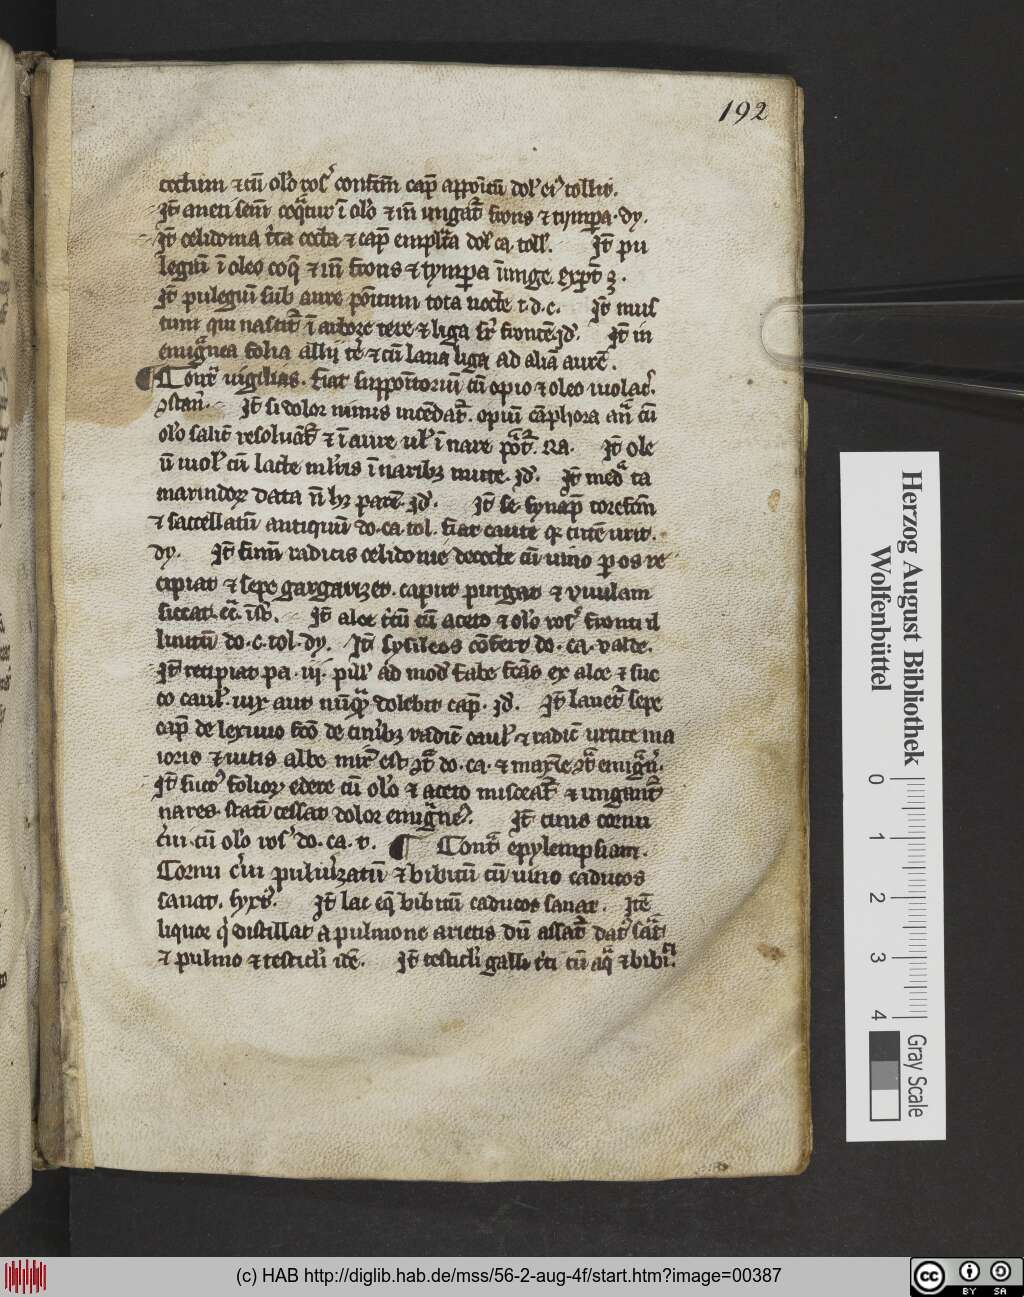 192
coctum ⁊ cū ol'o ros' confectm̄ cap̄ appoītū dol' ei' tollit.
It̄ aneti sem̄ coq̄tur ī ol'o ⁊ in̄ ungat̄ frons ⁊ tympa. dy.
It̄ celidonia t̄ta cocta ⁊ cap̄ emplr̄a dol' ca. toll'. It̄ pu
legiū ī oleo coq̄ ⁊ in̄ frons ⁊ tympa īunge exp̄t
It̄ pulegiū sub aure po'itum tota nocte i. d. c. It̄ mus
cum qui nascit̄ ī arbore tere ⁊ liga sr̄ frontē id'. It̄ in
emigͣnea folia allii te' ⁊ cū lana liga ad aliā aurē.
Contͣ vigilias. fiat suppo'itoriū cū opio ⁊ oleo violac'.
It̄ si dolor nimis incēdat̄. opiū cāphora an̄ cū
ol'o salic̄ resoluāt̄ ⁊ ī aure ul' ī nare Ra. It̄ ole
ū viol' cū lacte ml'ris ī naribꝫ mitte. id'. It̄ medͣ ta
marindoꝝ data n̄ hꝫ parē. id'. It̄ se. synap̄ torefctm̄
⁊ saccellatū antiquū do. ca. tol. fiat caute qꝛ cutē urit.
dy. It̄ fum̄ radicis celidonie decocte cū vino p os re
cipiat ⁊ sepe gargarizet. caput purgat ⁊ vvulam
siccat. It̄ aloe t̄tū cū aceto ⁊ ol'o ros' fronti il
linitū do. c. tol. dy. It̄ sysileos cōfert do. ca. valde.
It̄ recipiat pa. iij. pill' ad mod' fabe fc̄as ex aloe ⁊ suc
co caul'. vix aut nūqͣ dolebit cap̄. id'. It̄ lauet̄ sepe
cap̄ de lexiuio fc̄o de cin'ibꝫ radic̄ caul' ⁊ radic̄ urtice ma
ioris ⁊ vitis albe mir̄ est do. ca. ⁊ maxīe emigͣ.
It̄ succ' folioꝝ edere cū ol'o ⁊ aceto misceat̄ ⁊ ungant̄
nares. statī cessat dolor emigͣne'. It̄ cinis cornu
c'ui. cū ol'o ros' do. ca. v. Contͣ epylempsiam.
Cornu c'ui puluīzatū ⁊ bibitū cū vino caducos
sanat. syxt'. It̄ lac eq̄ bibitū caducos sanat. Itē
liquor q̄ distillat a pulmone arietis dū assat̄ dat'
⁊ pulmo ⁊ testicl'i idē. It̄ testicl'i galli t'ti cū aqͣ ⁊ bibi
Herzog August Bibliothek
Wolfenbüttel
0 1 2 3 4
Gray Scale
(c) HAB http://diglib.hab.de/mss/56-2-aug-4f/start.htm?image=00387
cc BY SA